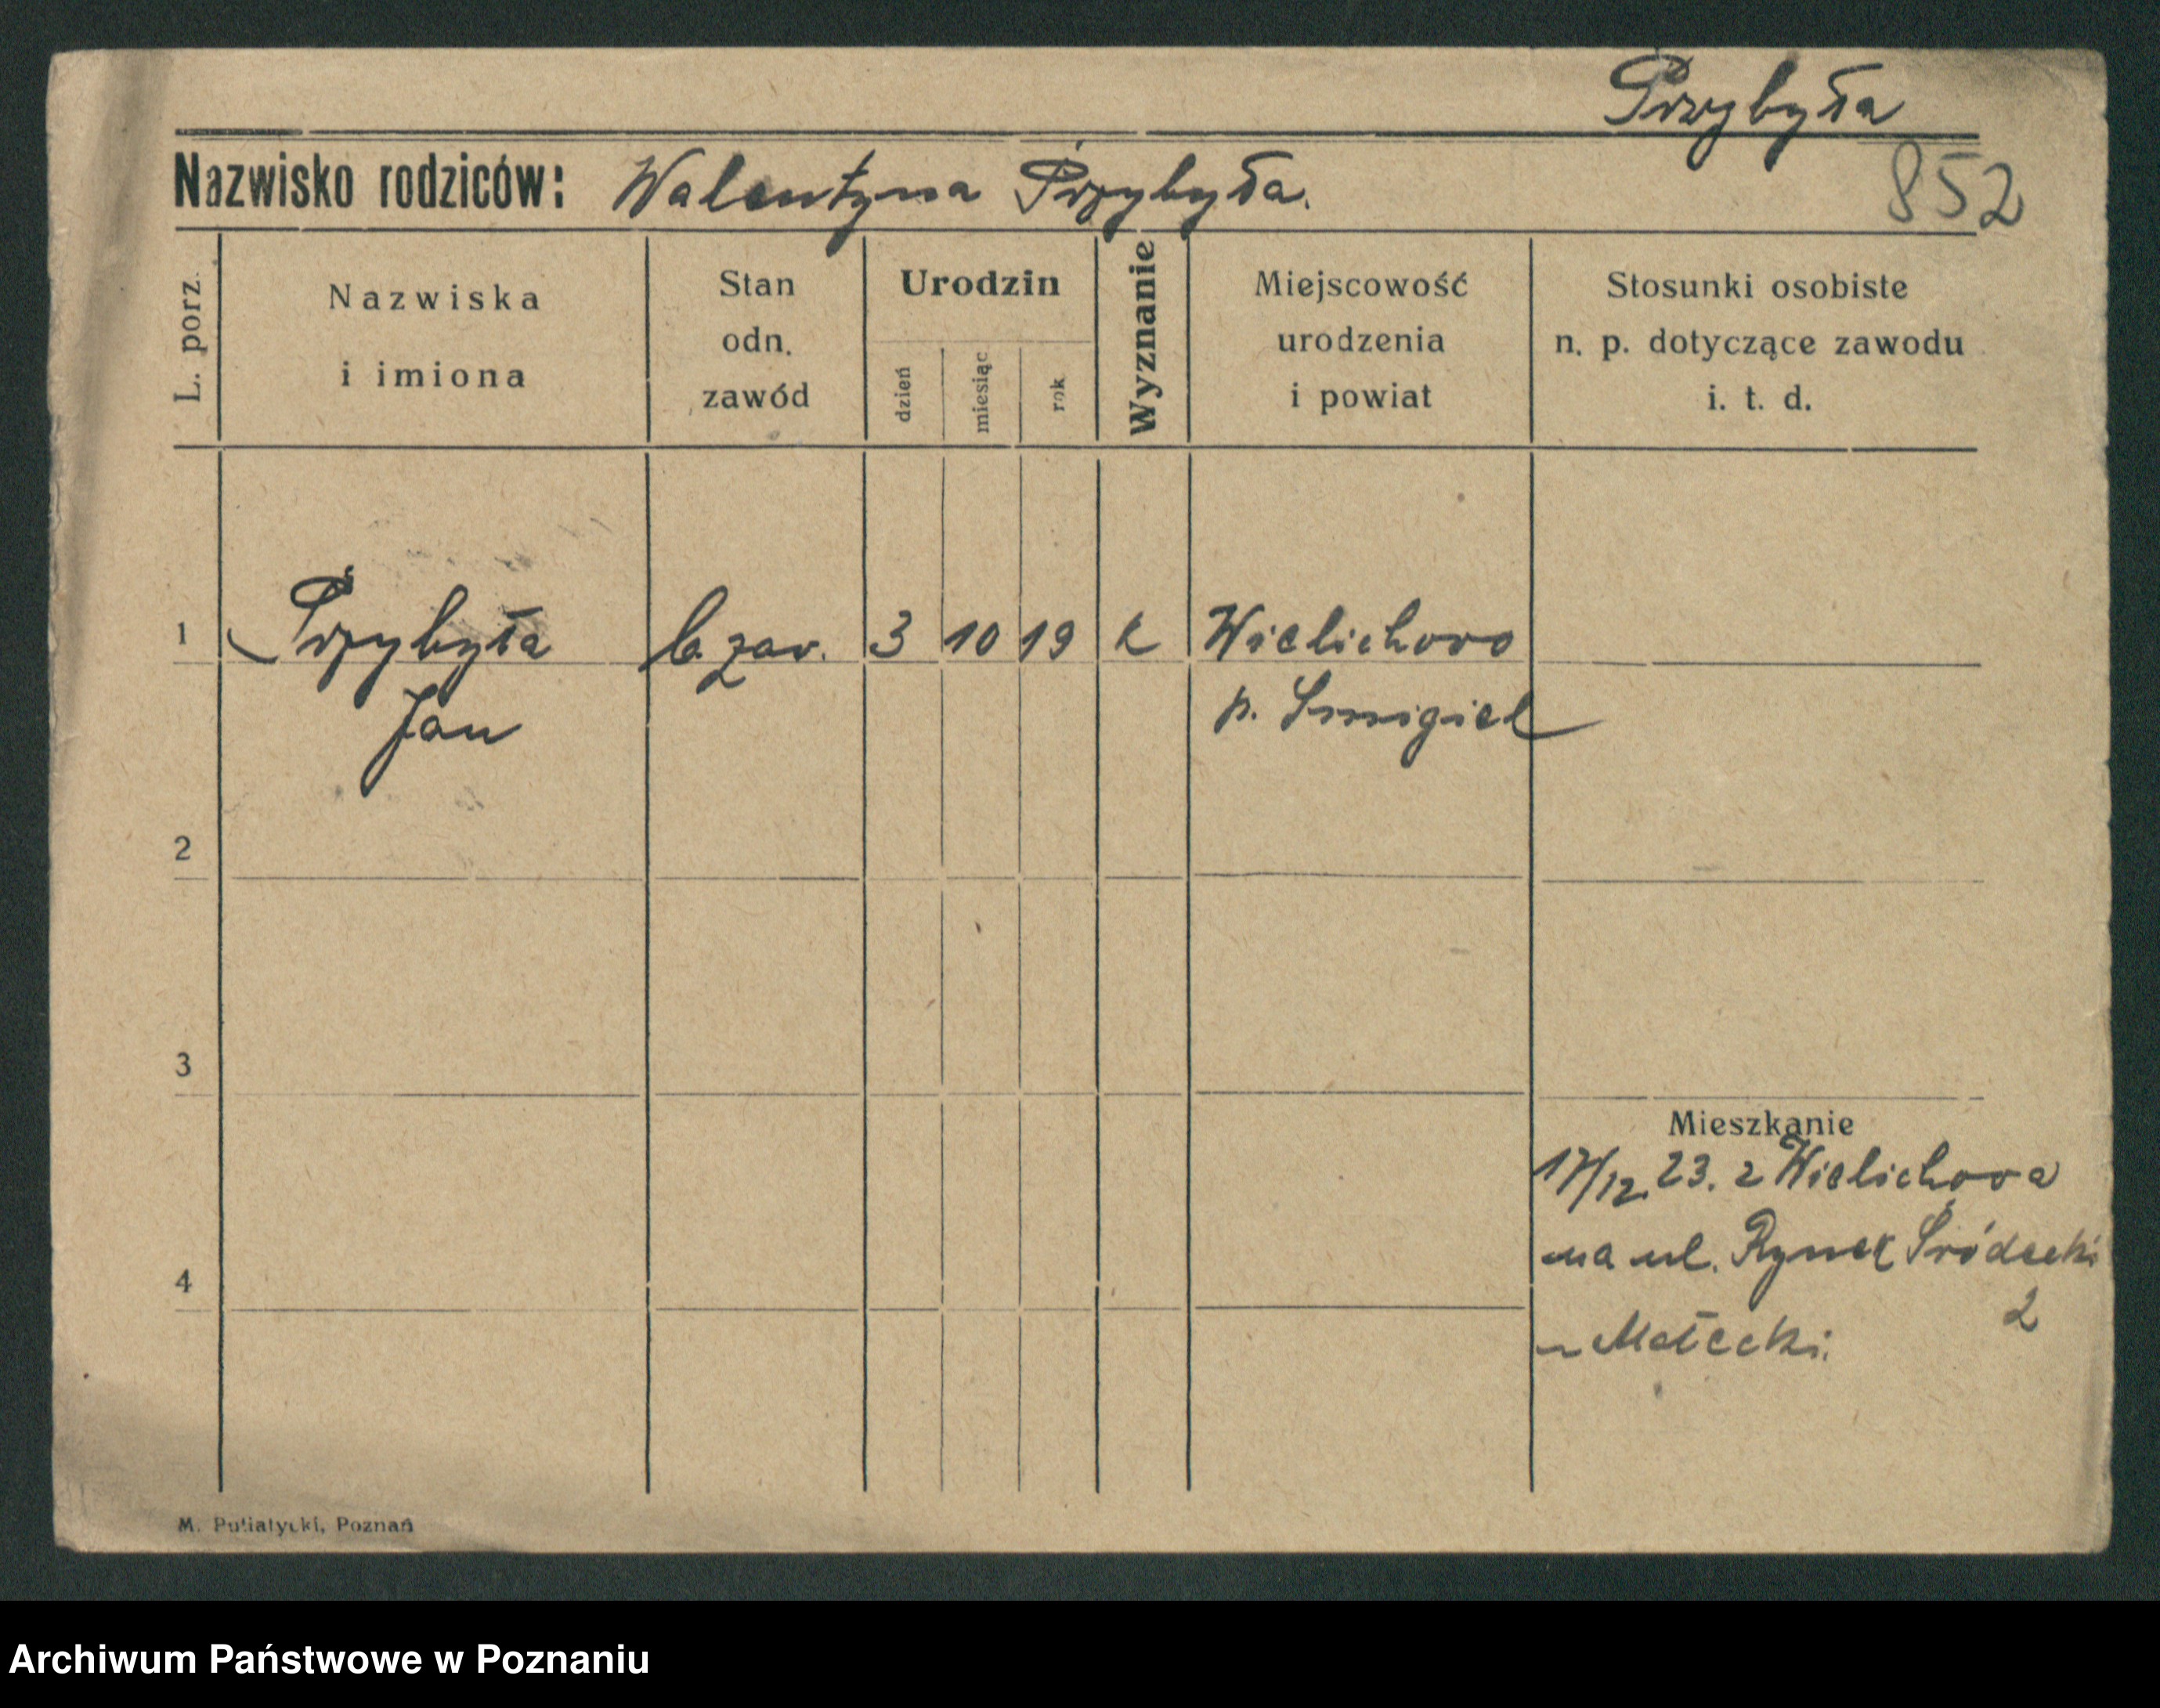 Przybyła
Nazwisko rodziców: Walentyna Przybyła.
852
L. porz.
Nazwiska
i imiona
Stan
odn.
zawód
Urodzin
dzień
miesiąc
rok
Wyznanie
Miejscowość
urodzenia
i powiat
Stosunki osobiste
n. p. dotyczące zawodu
i. t. d.
1 Przybyła b. zaw. 3 10 19 k Wielichowo
Jan p. Smigiel
2
3
4
Mieszkanie
17/12. 23. z Wielichowa
na ul. Rynek Śródecki
2
u Małecki.
M. Putiatycki, Poznań
Archiwum Państwowe w Poznaniu